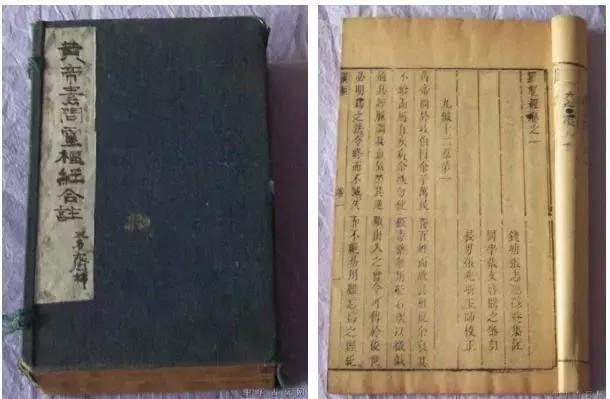 黄帝素問靈樞經合註
靈樞經卷之一
錢塘張志聰隱菴集註
同學張文啓開之參訂
長男張兆璜玉師校正
九鍼十二原第一
黃帝問於岐伯曰余子萬民養百姓而收其租稅余哀其
不給而屬有疾病余欲勿使被毒藥無用砭石欲以微鍼
通其經脈調其血氣榮其逆順出入之會令可傳於後世
必明爲之法令終而不滅久而不絕易用難忘爲之經紀
靈樞 卷一